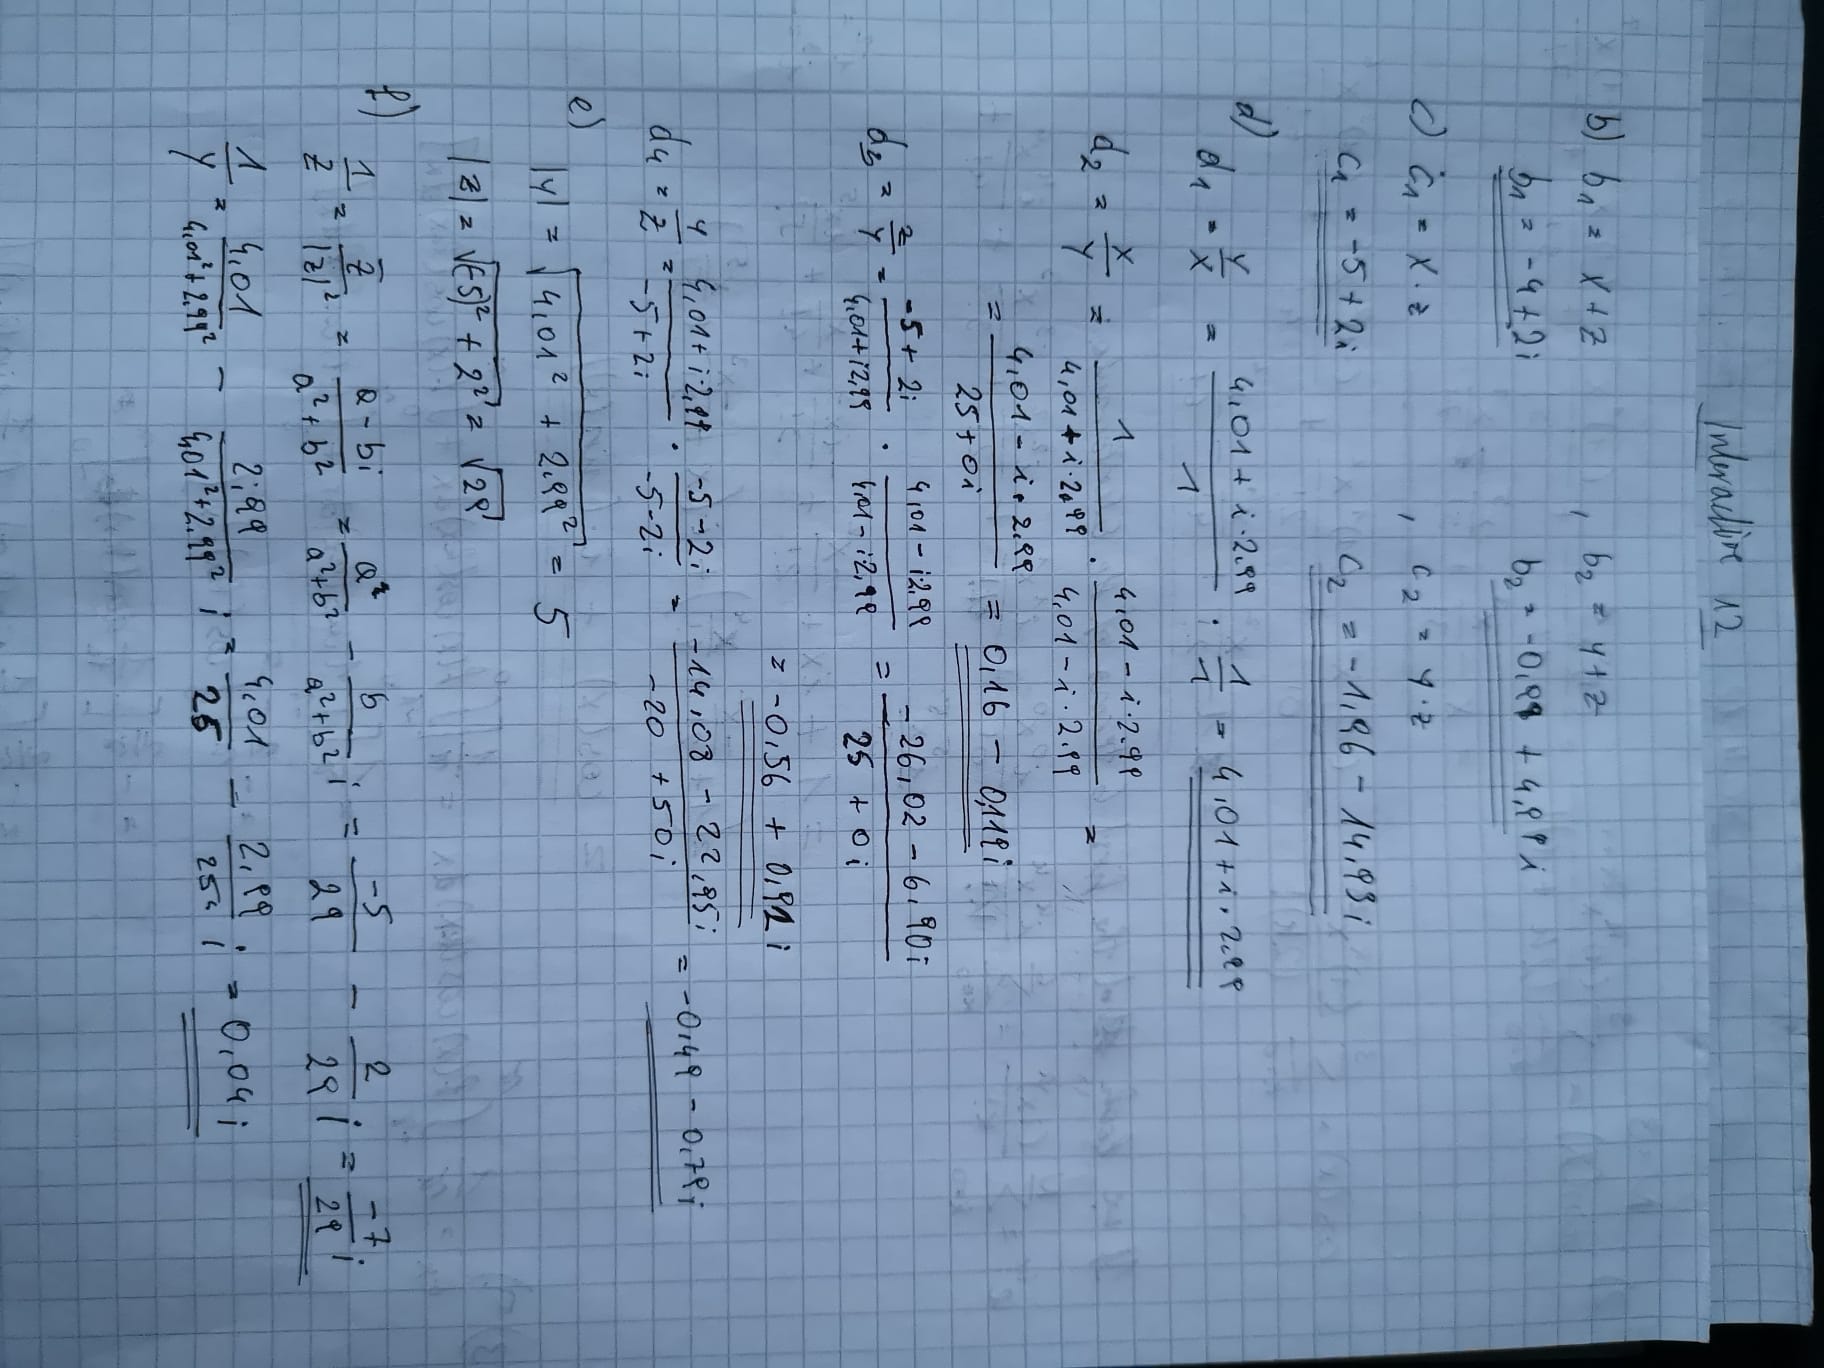 Interactive 12
b) b₁ = x+z , b₂ = y+z
b₁ = -4+2i b₂ = -0,99 + 4,99i
c) c₁ = x·z , c₂ = y·z
c₁ = -5+2i c₂ = -1,96 - 14,93i
d) d₁ = y/x = (4,01+i·2,99)/1 · 1/1 = 4,01+i·2,99
d₂ = x/y = 1/(4,01+i·2,99) · (4,01-i·2,99)/(4,01-i·2,99) =
= (4,01-i·2,99)/(25+0i) = 0,16 - 0,119i
d₃ = z/y = (-5+2i)/(4,01+i2,99) · (4,01-i2,99)/(4,01-i2,99) = (-26,02-6,90i)/(25+0i)
= -0,56 + 0,92i
d₄ = y/z = (4,01+i·2,99)/(-5+2i) · (-5-2i)/(-5-2i) = (-14,08-22,95i)/(-20+50i) = -0,49-0,79i
e) |y| = √(4,01² + 2,99²) = 5
|z| = √((-5)² + 2²) = √29
f) 1/z = z̅/|z|² = (a-bi)/(a²+b²) = a/(a²+b²) - b/(a²+b²) i = -5/29 - 2/29 i = -7/29 i
1/y = 4,01/(4,01²+2,99²) - 2,99/(4,01²+2,99²) i = 4,01/25 - 2,99/25 i = 0,04i